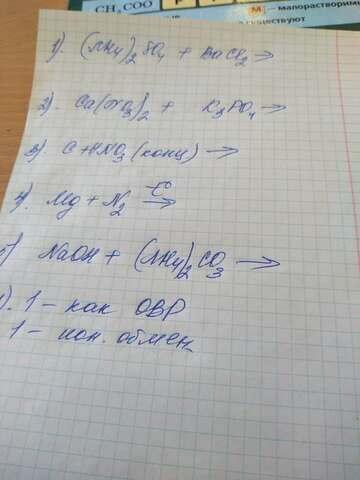 CH₃COO
М — малорастворимы
существуют
1) (NH₄)₂SO₄ + BaCl₂ →
2) Ca(NO₃)₂ + K₃PO₄ →
3) C + HNO₃ (конц) →
4) Mg + N₂ —t°→
5) NaOH + (NH₄)₂CO₃ →
). 1 – как ОВР
1 – ион. обмен